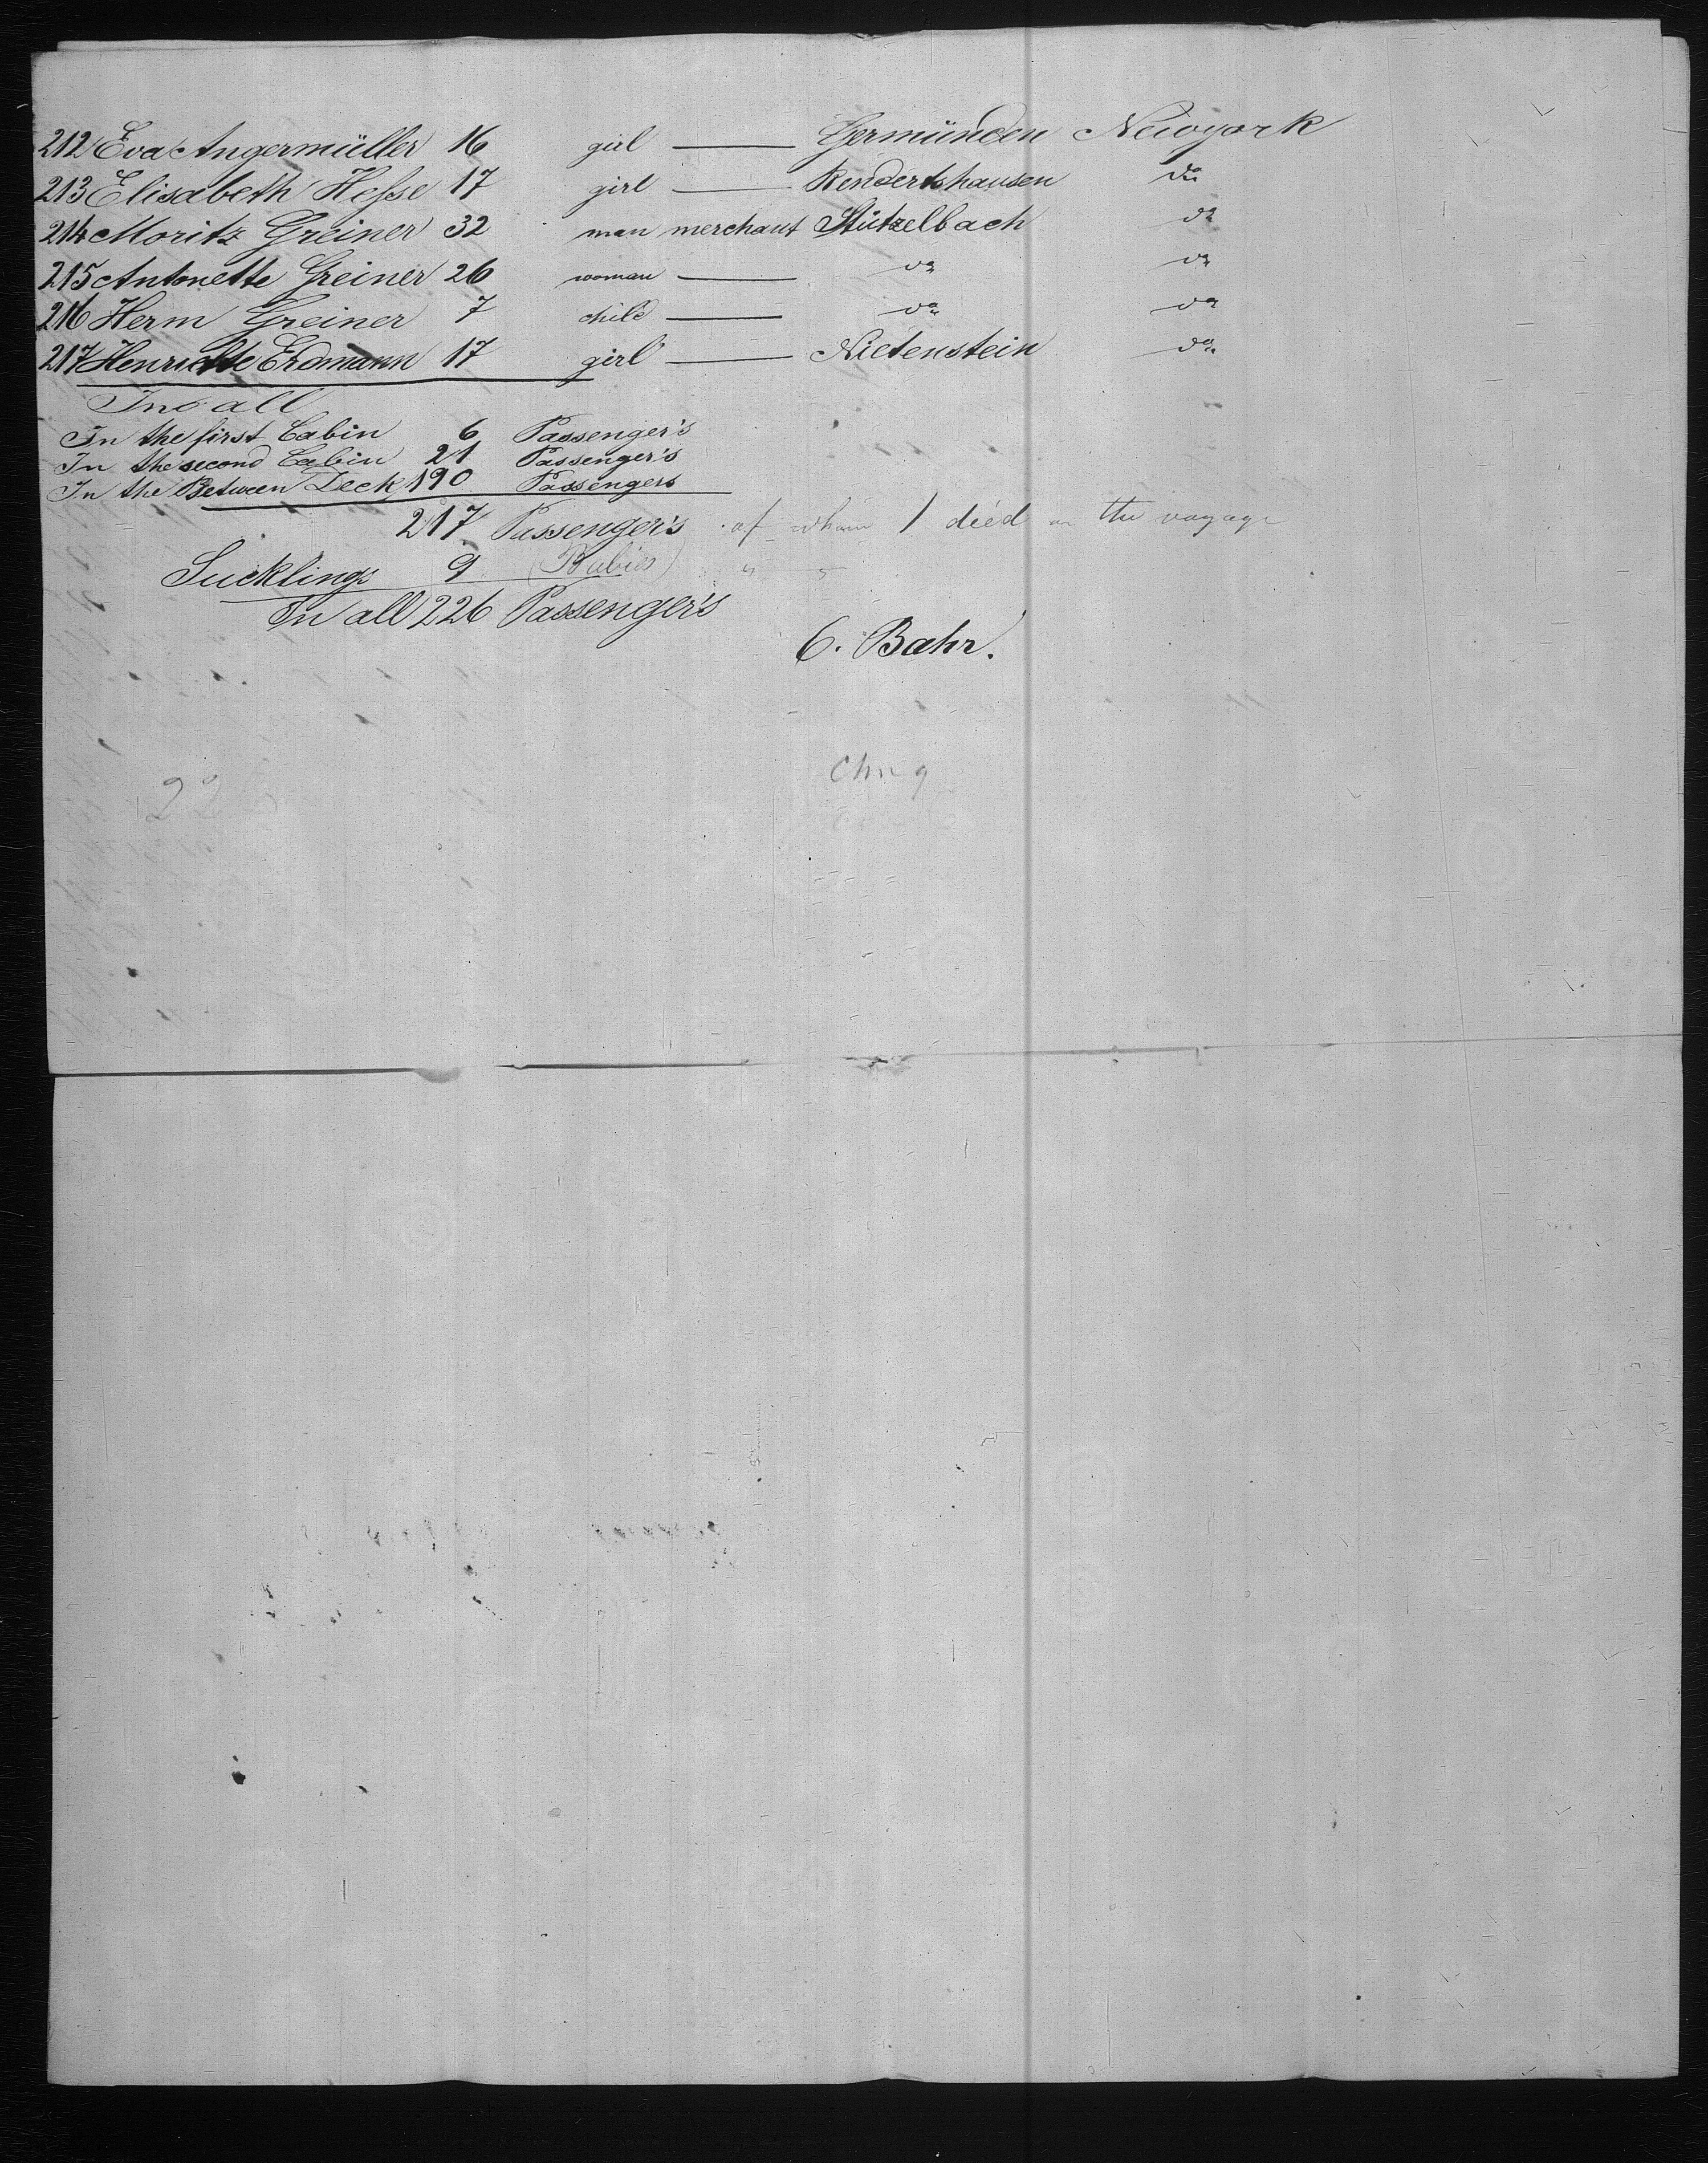 212 Eva Angermüller 16 girl —— Germünden Newyork
213 Elisabeth Hesse 17 girl —— Rendertshausen do
214 Moritz Greiner 32 man merchant Stützelbach do
215 Antonette Greiner 26 woman —— do do
216 Herm Greiner 7 child —— do do
217 Henriette Erdmann 17 girl —— Nietenstein do
In all
In the first Cabin 6 Passenger's
In the second Cabin 21 Passenger's
In the Between Deck 190 Passengers
217 Passenger's of whom 1 died on the voyage
Sucklings 9 (Babies)
In all 226 Passenger's
C. Bahr.
226